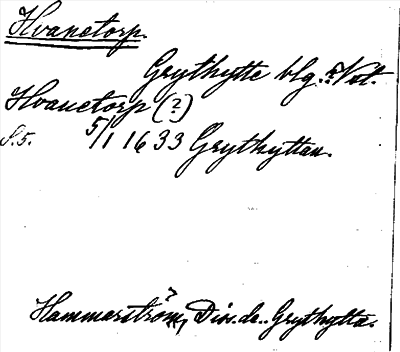 Hvanetorp.
Grythytte blg. Vst.
Hvanetorp (?)
S. 5. 5/1 1633 Grythyttan.
Hammarström, Diss. de. Grythytta.